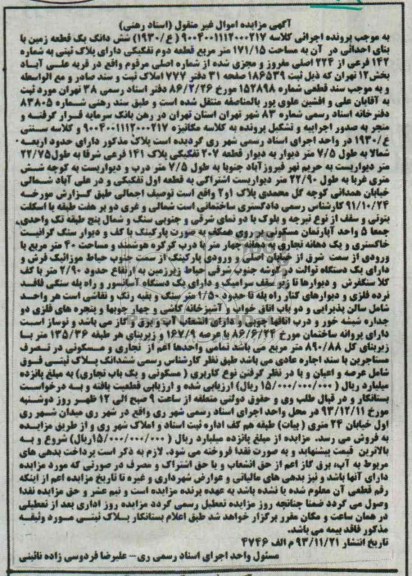 آگهی مزایده اموال غیر منقول (اسناد رهنی)
به موجب پرونده اجرائی کلاسه ۹۰۰۴۰۰۱۱۱۲۰۰۰۲۱۷ (ع/۱۹۳۰) شش دانگ یک قطعه زمین با
بنای احداثی در آن به مساحت ۱۷۱/۱۵ متر مربع قطعه دوم تفکیکی دارای پلاک ثبتی به شماره
۱۴۲ فرعی از ۲۲۴ اصلی مفروز و مجزی شده از شماره اصلی مرقوم واقع در قریه علی آباد
بخش۱۲ تهران که ذیل ثبت ۱۸۶۵۳۹ صفحه ۳۱ دفتر ۷۷۷ املاک ثبت و سند صادر و مع الواسطه
و به موجب سند قطعی شماره ۱۵۲۸۹۸ مورخ ۸۶/۲/۲۶ دفتر اسناد رسمی ۳۸ تهران مورد ثبت
به آقایان علی و افشین علوی پور بالمناصفه منتقل شده است و طبق سند رهنی شماره ۸۳۸۰۵
دفترخانه اسناد رسمی شماره ۸۳ شهر تهران استان تهران در رهن بانک سرمایه قرار گرفته و
منجر به صدور اجرائیه و تشکیل پرونده به کلاسه مکانیزه ۹۰۰۴۰۰۱۱۱۲۰۰۰۲۱۷ و کلاسه سنتی
ع/۱۹۳۰ در واحد اجرای اسناد رسمی شهر ری گردیده است پلاک مذکور دارای حدود اربعه:
شمالا به طول ۷/۵ متر دیوار به دیوار قطعه ۲۰۷ تفکیکی پلاک ۱۴۱ فرعی شرقا به طول۲۲/۷۵
متر دیواریست به حریم نهر فیروزآباد جنوبا به طول ۷/۵ متر درب و دیواریست به کوچه شش
متری غربا به طول ۲۲/۹۰ متر دیواریست اشتراکی به قطعه اول تفکیکی و در علی آباد شمالی
خیابان همدانی کوچه گل محمدی پلاک ۱و۲ واقع است توصیف اجمالی طبق گزارش مورخه
۹۱/۱۰/۲۴ کارشناس رسمی دادگستری ساختمانی است شمالی و غربی دو بر هفت طبقه با اسکلت
بتونی و سقف از نوع تیرچه و بلوک با دو نمای شرقی و جنوبی سنگ و شمال پنج طبقه تک واحدی،
جمعا ۵ واحد آپارتمان مسکونی بر روی همکف به صورت پارکینگ با کف و دیوار سنگ گرانیت
خاکستری و یک دهانه تجاری به دهانه چهار متر با درب کرکره هوشمند و مساحت ۴۰ متر مربع با
ورودی از سمت شرق از خیابان اصلی و ورودی پارکینگ از سمت جنوب حیاط موزائیک فرش و
دارای یک دستگاه توالت در گوشه جنوب شرقی حیاط زیرزمین به ارتفاع حدود ۲/۹۰ متر با کف
کلا سنگفرش و دیوارها تا زیر سقف سرامیک و دارای یک دستگاه آسانسور و راه پله سنگی فاقد
نرده فلزی و دیوارهای کنار راه پله تا حدود ۱/۵۰ متر سنگ و بقیه رنگ و نقاشی است هر واحد
شامل سالن پذیرایی و دو باب اتاق خواب (آشپزخانه کاشی و چهار چوبها و پنجره های فلزی دو
جداره شیشه خور و درب اتاقها چوبی و دارای انشعاب آب و برق و گاز می باشد و نوساز است
دارای پروانه ساختمان مورخ ۸۶/۶/۲۴ با عرصه ۱۶۷/۰۹ و زیربنای هر طبقه ۱۳۵/۳۶ متر با
زیربنای کل ۸۹۰/۸۸ متر مربع می باشد تمامی واحدها اعم از تجاری و مسکونی در تصرف
مستاجرین با سند اجاره عادی می باشد طبق نظر کارشناس رسمی ششدانگ پلاک ثبتی فوق
شامل عرصه و اعیان و با در نظر گرفتن نوع کاربری ( مسکونی و یک باب تجاری) به مبلغ پانزده
میلیارد ریال ( ۱۵/۰۰۰/۰۰۰/۰۰۰ ریال) ارزیابی شده و ارزیابی قطعیت یافته و به درخواست
بستانکار و در قبال طلب وی و حقوق دولتی متعلقه از ساعت ۹ صبح الی ۱۲ ظهر روز دوشنبه
مورخ ۹۳/۱۲/۱۱ در محل واحد اجرای اسناد رسمی شهر ری واقع در شهر ری میدان شهر ری
اول خیابان ۲۴ متری ( بیات) طبقه هم کف اداره ثبت اسناد و املاک شهر ری و از طریق مزایده
به فروش می رسد. مزایده از مبلغ پانزده میلیارد ریال ( ۱۵/۰۰۰/۰۰۰/۰۰۰ریال) شروع و به
بالاترین قیمت پیشنهادی و به صورت نقدا فروخته می شود. لازم به ذکر است پرداخت بدهی های
مربوط به آب، برق گاز اعم از حق انشعاب و یا حق اشتراک و مصرف در صورتی که مورد مزایده
دارای آنها باشد و نیز بدهی های مالیاتی و عوارض شهرداری و غیره تا تاریخ مزایده اعم از اینکه
رقم قطعی آن معلوم شده یا نشده باشد به عهده برنده مزایده است و نیم عشر و حق مزایده نقدا
وصول می گردد ضمنا چنانچه روز مزایده تعطیل رسمی گردد مزایده روز اداری بعد از تعطیلی
در همان ساعت و مکان مقرر برگزار خواهد شد طبق اعلام بستانکار پلاک ثبتی مورد وثیقه
مذکور فاقد بیمه می باشد.
تاریخ انتشار ۹۳/۱۱/۲۱ م الف ۴۷۴۶
مسئول واحد اجرای اسناد رسمی ری- علیرضا فردوسی زاده نائینی